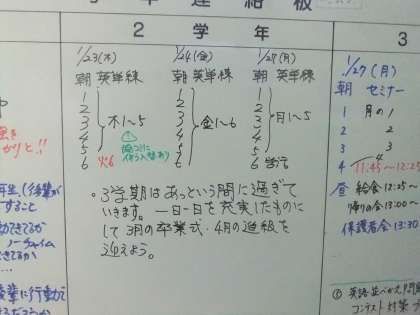 連絡板
2 学年
3
1/23(木)
朝 英単練
1
2
3
4
5
6
木1〜5
火6
1/24(金)
朝 英単棟
1
2
3
4
5
6
金1〜6
1/27(月)
朝 英単棟
1
2
3
4
5
6
月1〜5
学活
。3学期はあっという間に過ぎて
いきます。一日一日を充実したものに
して3月の卒業式・4月の進級を
迎えよう。
1/27(月)
朝 セミナー
1 月の1
2 2
3 3
4 4
11:45〜12:25
昼 給食 12:25〜
帰りの会 13:00〜
保護者会 13:30
① 英語 並べかえ問題
コンテスト対策
すること
できてるか
ノーチャイム
できてるか